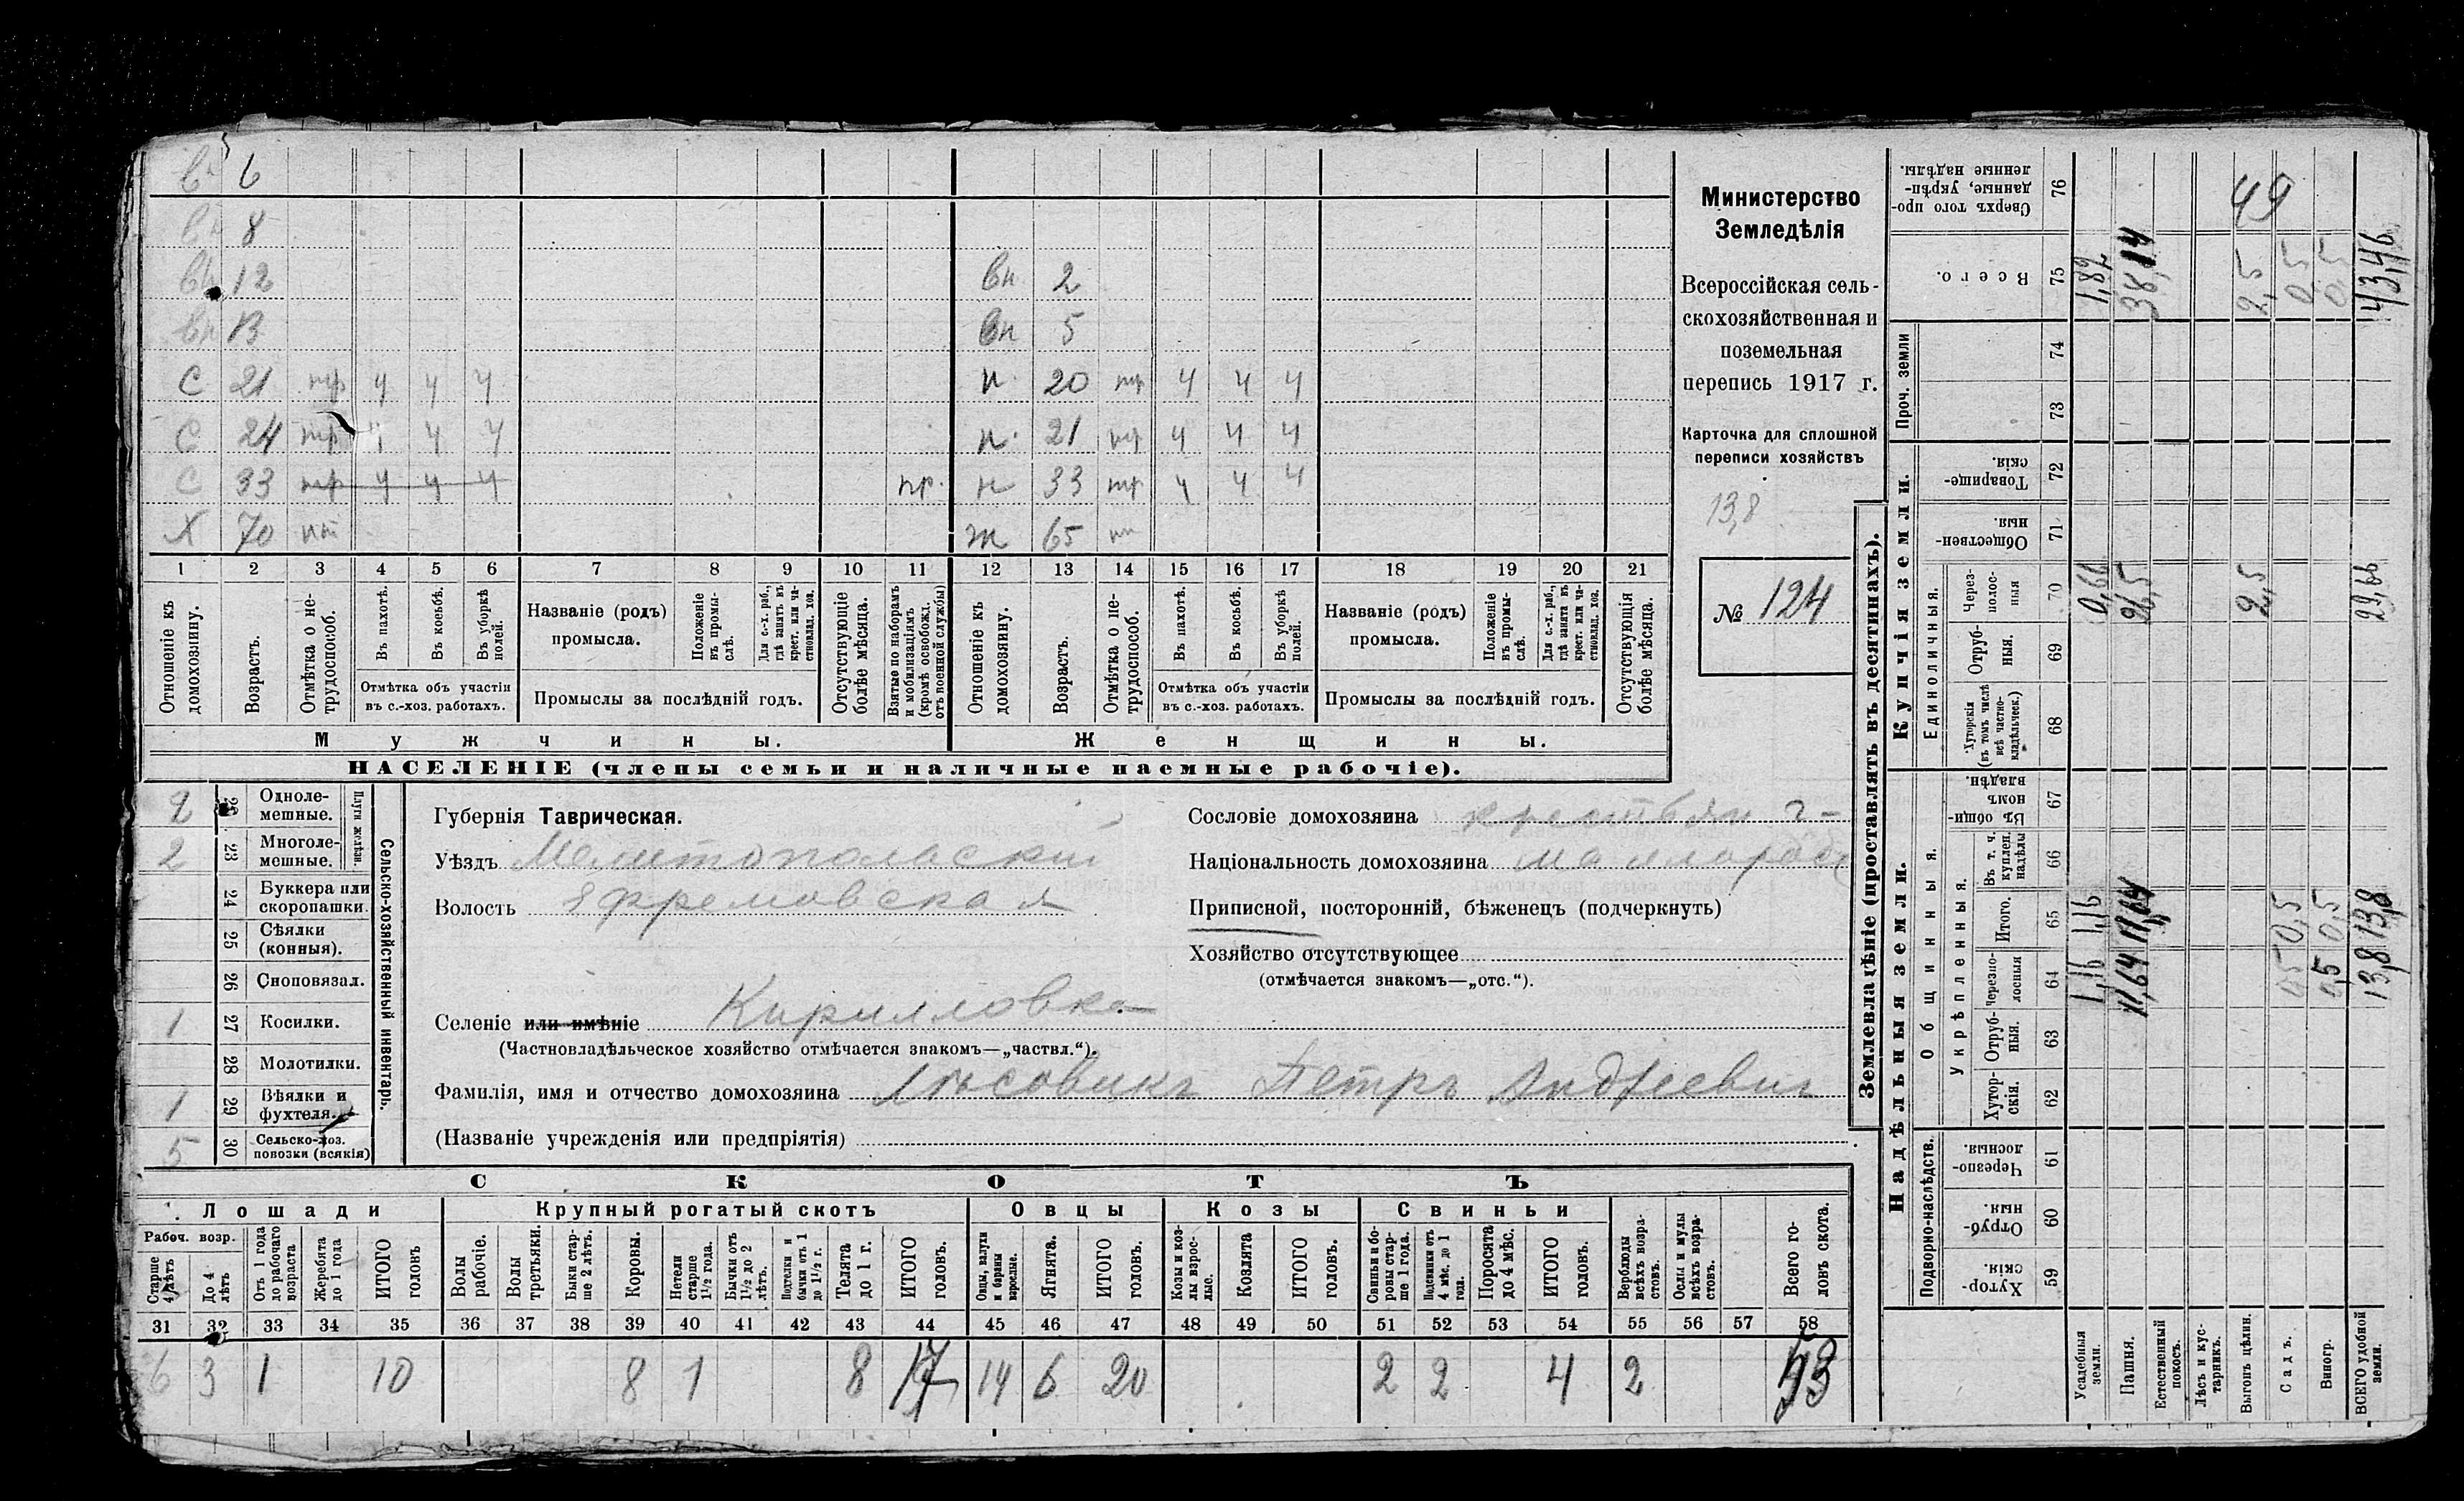 вн 6
вн 8
вн 12 вн 2
вн 13 вн 5
С 21 нр ч ч ч н 20 нр ч ч ч
С 24 нр ч ч ч н 21 нр ч ч ч
С 33 нр ч ч ч пр. н 33 нр ч ч ч
Х 70 нт ж 65
1 2 3 4 5 6 7 8 9 10 11 12 13 14 15 16 17 18 19 20 21
Отношеніе къ домохозяину.
Возрастъ.
Отмѣтка о нетрудоспособ.
Въ пахотѣ.
Въ косьбѣ.
Въ уборкѣ полей.
Отмѣтка объ участіи
въ с.-хоз. работахъ.
Названіе (родъ)
промысла.
Положеніе въ промыслѣ.
Для с.-х. раб., гдѣ занятъ въ крест. или частновлад. хоз.
Промыслы за послѣдній годъ.
Отсутствующіе болѣе мѣсяца.
Взятые по наборамъ и мобилизаціямъ (кромѣ освобожд. отъ военной службы)
Отношеніе къ домохозяину.
Возрастъ.
Отмѣтка о нетрудоспособ.
Въ пахотѣ.
Въ косьбѣ.
Въ уборкѣ полей.
Отмѣтка объ участіи
въ с.-хоз. работахъ.
Названіе (родъ)
промысла.
Положеніе въ промыслѣ.
Для с.-х. раб., гдѣ занятъ въ крест. или частновлад. хоз.
Промыслы за послѣдній годъ.
Отсутствующія болѣе мѣсяца.
Мужчины. Женщины.
НАСЕЛЕНІЕ (члены семьи и наличные наемные рабочіе).
Министерство
Земледѣлія
Всероссійская сель-
скохозяйственная и
поземельная
перепись 1917 г.
Карточка для сплошной
переписи хозяйствъ
13,8
№ 124
Сельско-хозяйственный инвентарь.
Плуги желѣзн.
2 22 Одноле-
мешные.
2 23 Многоле-
мешные.
24 Буккера или
скоропашки.
25 Сѣялки
(конныя).
26 Сноповязал.
1 27 Косилки.
28 Молотилки.
1 29 Вѣялки и
фухтеля.
5 30 Сельско-хоз.
повозки (всякія)
Губернія Таврическая.
Уѣздъ Мелитопольскій
Волость Ефремовская
Селеніе или имѣніе Кирилловка
(Частновладѣльческое хозяйство отмѣчается знакомъ—„частвл.“).
Фамилія, имя и отчество домохозяина Лысовикъ Петръ Андреевич
(Названіе учрежденія или предпріятія)
Сословіе домохозяина крестьян
Національность домохозяина
Приписной, посторонній, бѣженецъ (подчеркнуть)
Хозяйство отсутствующее
(отмѣчается знакомъ—„отс.“).
СКОТЪ
Лошади Крупный рогатый скотъ Овцы Козы Свиньи
Рабоч. возр.
Старше 4 лѣтъ
До 4 лѣтъ
Отъ 1 года до рабочаго возраста
Жеребята до 1 года
ИТОГО головъ
Волы рабочіе.
Волы третьяки.
Быки старше 2 лѣтъ.
Коровы.
Нетели старше 1½ года.
Бычки отъ 1½ до 2 лѣтъ.
Подтелки и бычки отъ 1 до 1½ г.
Телята до 1 г.
ИТОГО головъ.
Овцы, валухи и бараны взрослые.
Ягнята.
ИТОГО головъ.
Козы и козлы взрослые.
Козлята
ИТОГО головъ.
Свиньи и боровы старше 1 года.
Подсвинки отъ 4 мѣс. до 1 года.
Поросята до 4 мѣс.
ИТОГО головъ.
Верблюды всѣхъ возрастовъ.
Ослы и мулы всѣхъ возрастовъ.
Всего головъ скота.
31 32 33 34 35 36 37 38 39 40 41 42 43 44 45 46 47 48 49 50 51 52 53 54 55 56 57 58
6 3 1 10 8 1 8 17 14 6 20 2 2 4 2 53
Землевладѣніе (проставлять въ десятинахъ).
Надѣльныя земли. Купчія земли. Проч. земли
Подворно-наслѣдств. Общинныя. Укрѣпленныя. Единоличныя.
59 Хуторскія.
60 Отрубныя.
61 Черезполосныя.
62 Хуторскія.
63 Отрубныя.
64 Черезполосныя
65 Итого.
66 Въ т. ч. куплен. надѣлы
67 Въ общинномъ владѣн.
68 Хуторскія (въ томъ числѣ всѣ частновладѣльческ.)
69 Отрубныя.
70 Черезполосныя
71 Общественныя.
72 Товарищескія.
73
74
75 Всего.
76 Сверхъ того проданные, укрѣпленные надѣлы.
Усадебныя земли. 1,16 1,16 0,66 1,82
Пашня. 11,64 11,64 26,5 38,14
Естественный покосъ.
Лѣсъ и кустарникъ.
Выгонъ цѣлин. 2,5 2,5 49
Садъ. 0,5 0,5 0,5
Виногр. 0,5 0,5 0,5
ВСЕГО удобной земли. 13,8 13,8 29,66 43,46